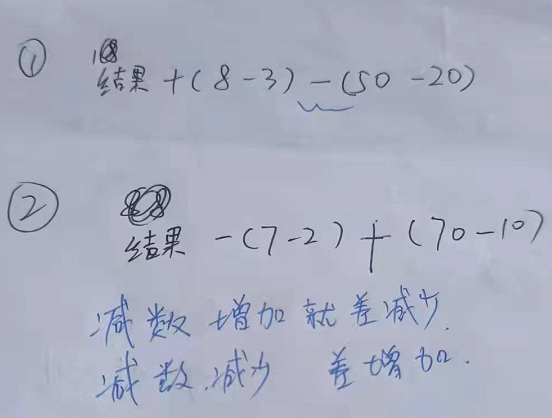 ①
结果 +(8-3) -(50-20)
②
结果 -(7-2) + (70-10)
减数增加就差减少.
减数.减少 差增加.